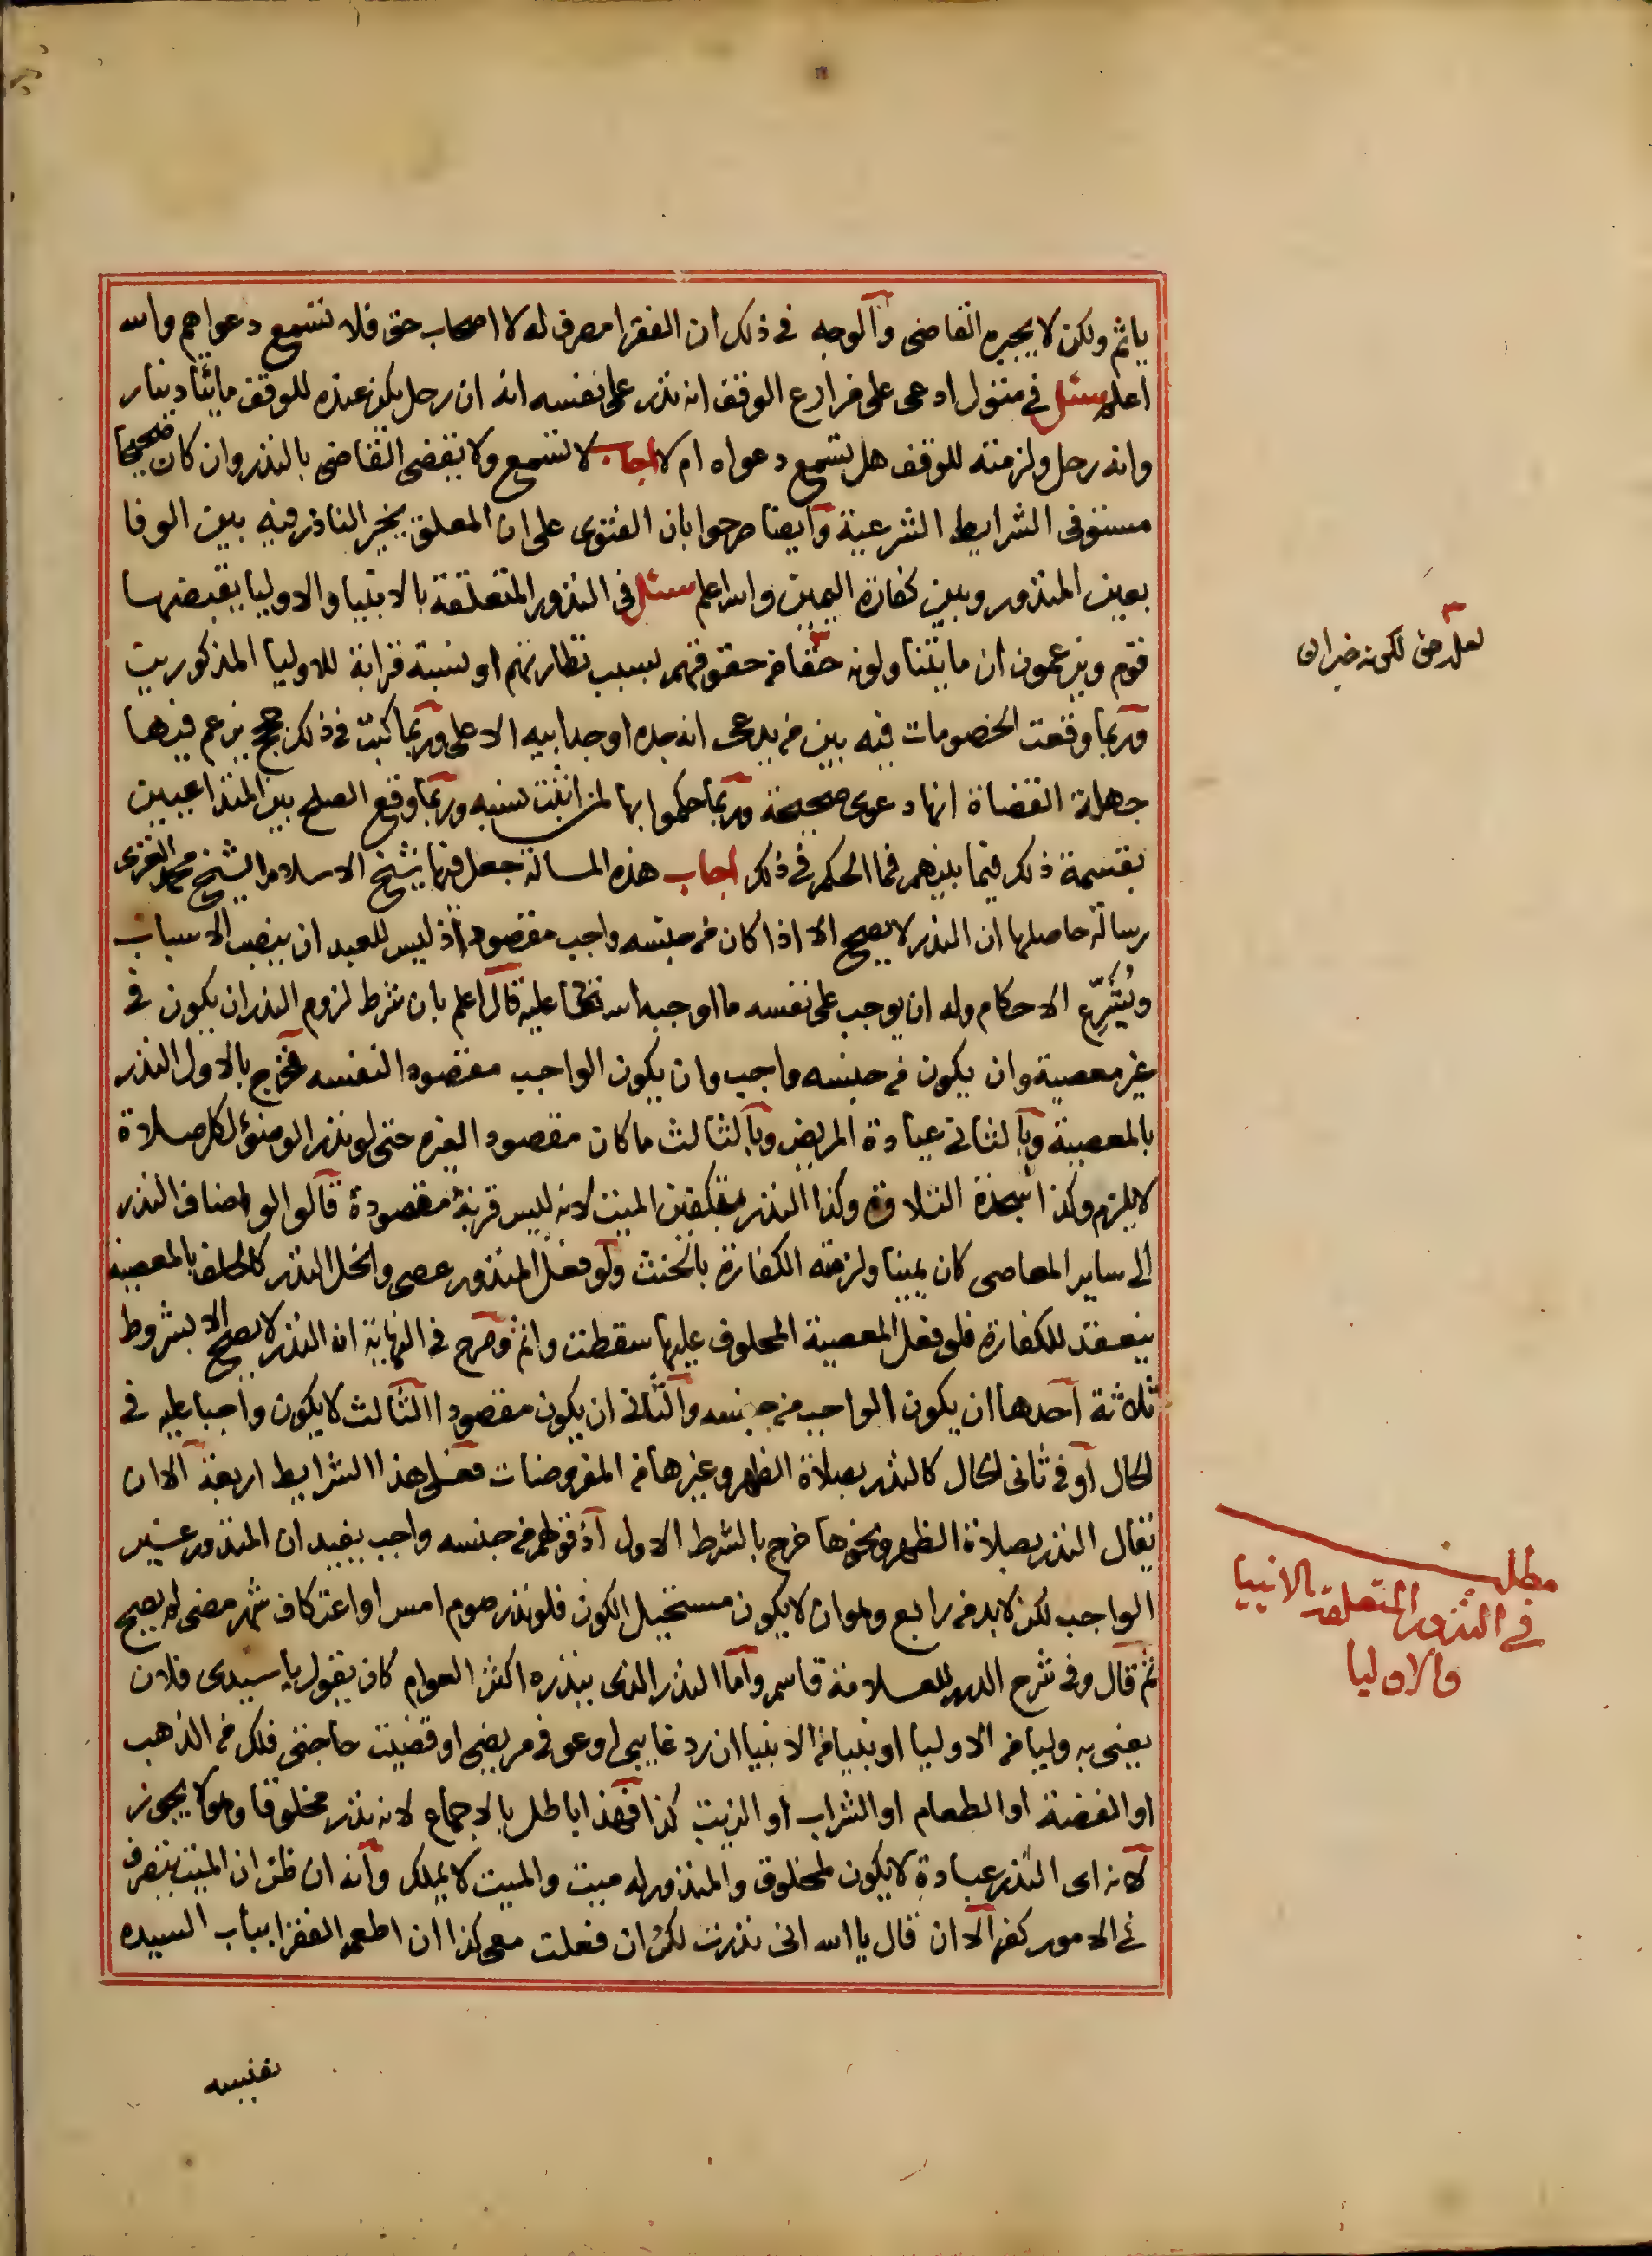 ياثم ولكن لا يجبره القاضى والوجه فى ذلك ان الفقرا مصرف له لا اصحاب حق فلا تسمع دعواهم والله
اعلم سئل فى متول ادعى على مزارع الوقف انه نذر على نفسه انه ان رحل يكن عنده للوقف مائتا دينار
وانه رحل ولزمته للوقف هل تسمع دعواه ام لا اجاب لا تسمع ولا يقضى القاضى بالنذر وان كان صحيحا
مستوفى الشرايط الشرعية وايضا صرحوا بان الفتوى على ان المعلق يخير الناذر فيه بين الوفا
بعين المنذور وبين كفارة اليمين والله اعلم سئل فى النذور المتعلقة بالانبيا والاوليا يقبضها
قوم ويزعمون ان ما يتناولونه حقا من حقوقهم بسبب نظارتهم او نسبة قرابة للاوليا المذكورين
وربما وقعت الخصومات فيه بين من يدعى انه جده او جد ابيه الاعلى وربما كتبت فى ذلك حجج يزعم فيها
جهلة القضاة انها دعوى صحيحة وربما حكموا بها لمن اثبت نسبه وربما وقع الصلح بين المتداعيين
بقسمة ذلك فيما بينهم فما الحكم فى ذلك اجاب هذه المسالة جعل فيها شيخ الاسلام الشيخ محمد الغزى
رسالة حاصلها ان النذر لا يصح الا اذا كان من جنسه واجب مقصود اذ ليس للعبد ان ينصب الاسباب
ويُشَرِّع الاحكام وله ان يوجب على نفسه ما اوجبه الله تعالى عليه قال اعلم بان شرط لزوم النذر ان يكون فى
غير معصية وان يكون من جنسه واجب وان يكون الواجب مقصودا لنفسه فخرج بالاول النذر
بالمعصية وبالثانى عيادة المريض وبالثالث ما كان مقصود الغيره حتى لو نذر الوضوء لكل صلاة
لا يلزم وكذا سجدة التلاوة وكذا النذر بتكفين الميت لانه ليس قربة مقصودة قالوا لو اضاف النذر
الى ساير المعاصى كان يمينا ولزمته الكفارة بالحنث ولو فعل المنذور عصى وانحل النذر كالحلف بالمعصية
ينعقد للكفارة فلو فعل المعصية المحلوف عليها سقطت واثم وصرح فى النهاية ان النذر لا يصح الا بشروط
ثلاثة احدها ان يكون الواجب من جنسه والثانى ان يكون مقصودا الثالث لا يكون واجبا عليه فى
الحال او فى ثانى الحال كالنذر بصلاة الظهر وغيرها من المفروضات فعلى هذا الشرايط اربعة الا ان
يقال النذر بصلاة الظهر ونحوها خرج بالشرط الاول اذ قولهم من جنسه واجب يفيد ان المنذور غير
الواجب لكن لا بد من رابع وهو ان لا يكون مستحيل الكون فلو نذر صوم امس او اعتكاف شهر مضى لم يصح
ثم قال وفى شرح الدرر للعلامة قاسم واما النذر الذى ينذره اكثر العوام كان يقول يا سيدى فلان
يعنى به وليا من الاوليا او نبيا من الانبيا ان رد غايبى او عوفى مريضى او قضيت حاجتى فلك من الذهب
او الفضة او الطعام او الشراب او الزيت كذا فهذا باطل بالاجماع لانه نذر مخلوقا وهو لا يجوز
لانه اى النذر عبادة لا يكون لمخلوق والمنذور له ميت والميت لا يملك وانه ان ظن ان الميت يتصرف
فى الامور كفر الا ان قال يا الله انى نذرت لك ان فعلت معى كذا ان اطعم الفقرا بباب السيده
نفيسه
لعله حق لكونه خبر ان
مطلب
فى النذور المتعلقه بالانبيا
والاوليا